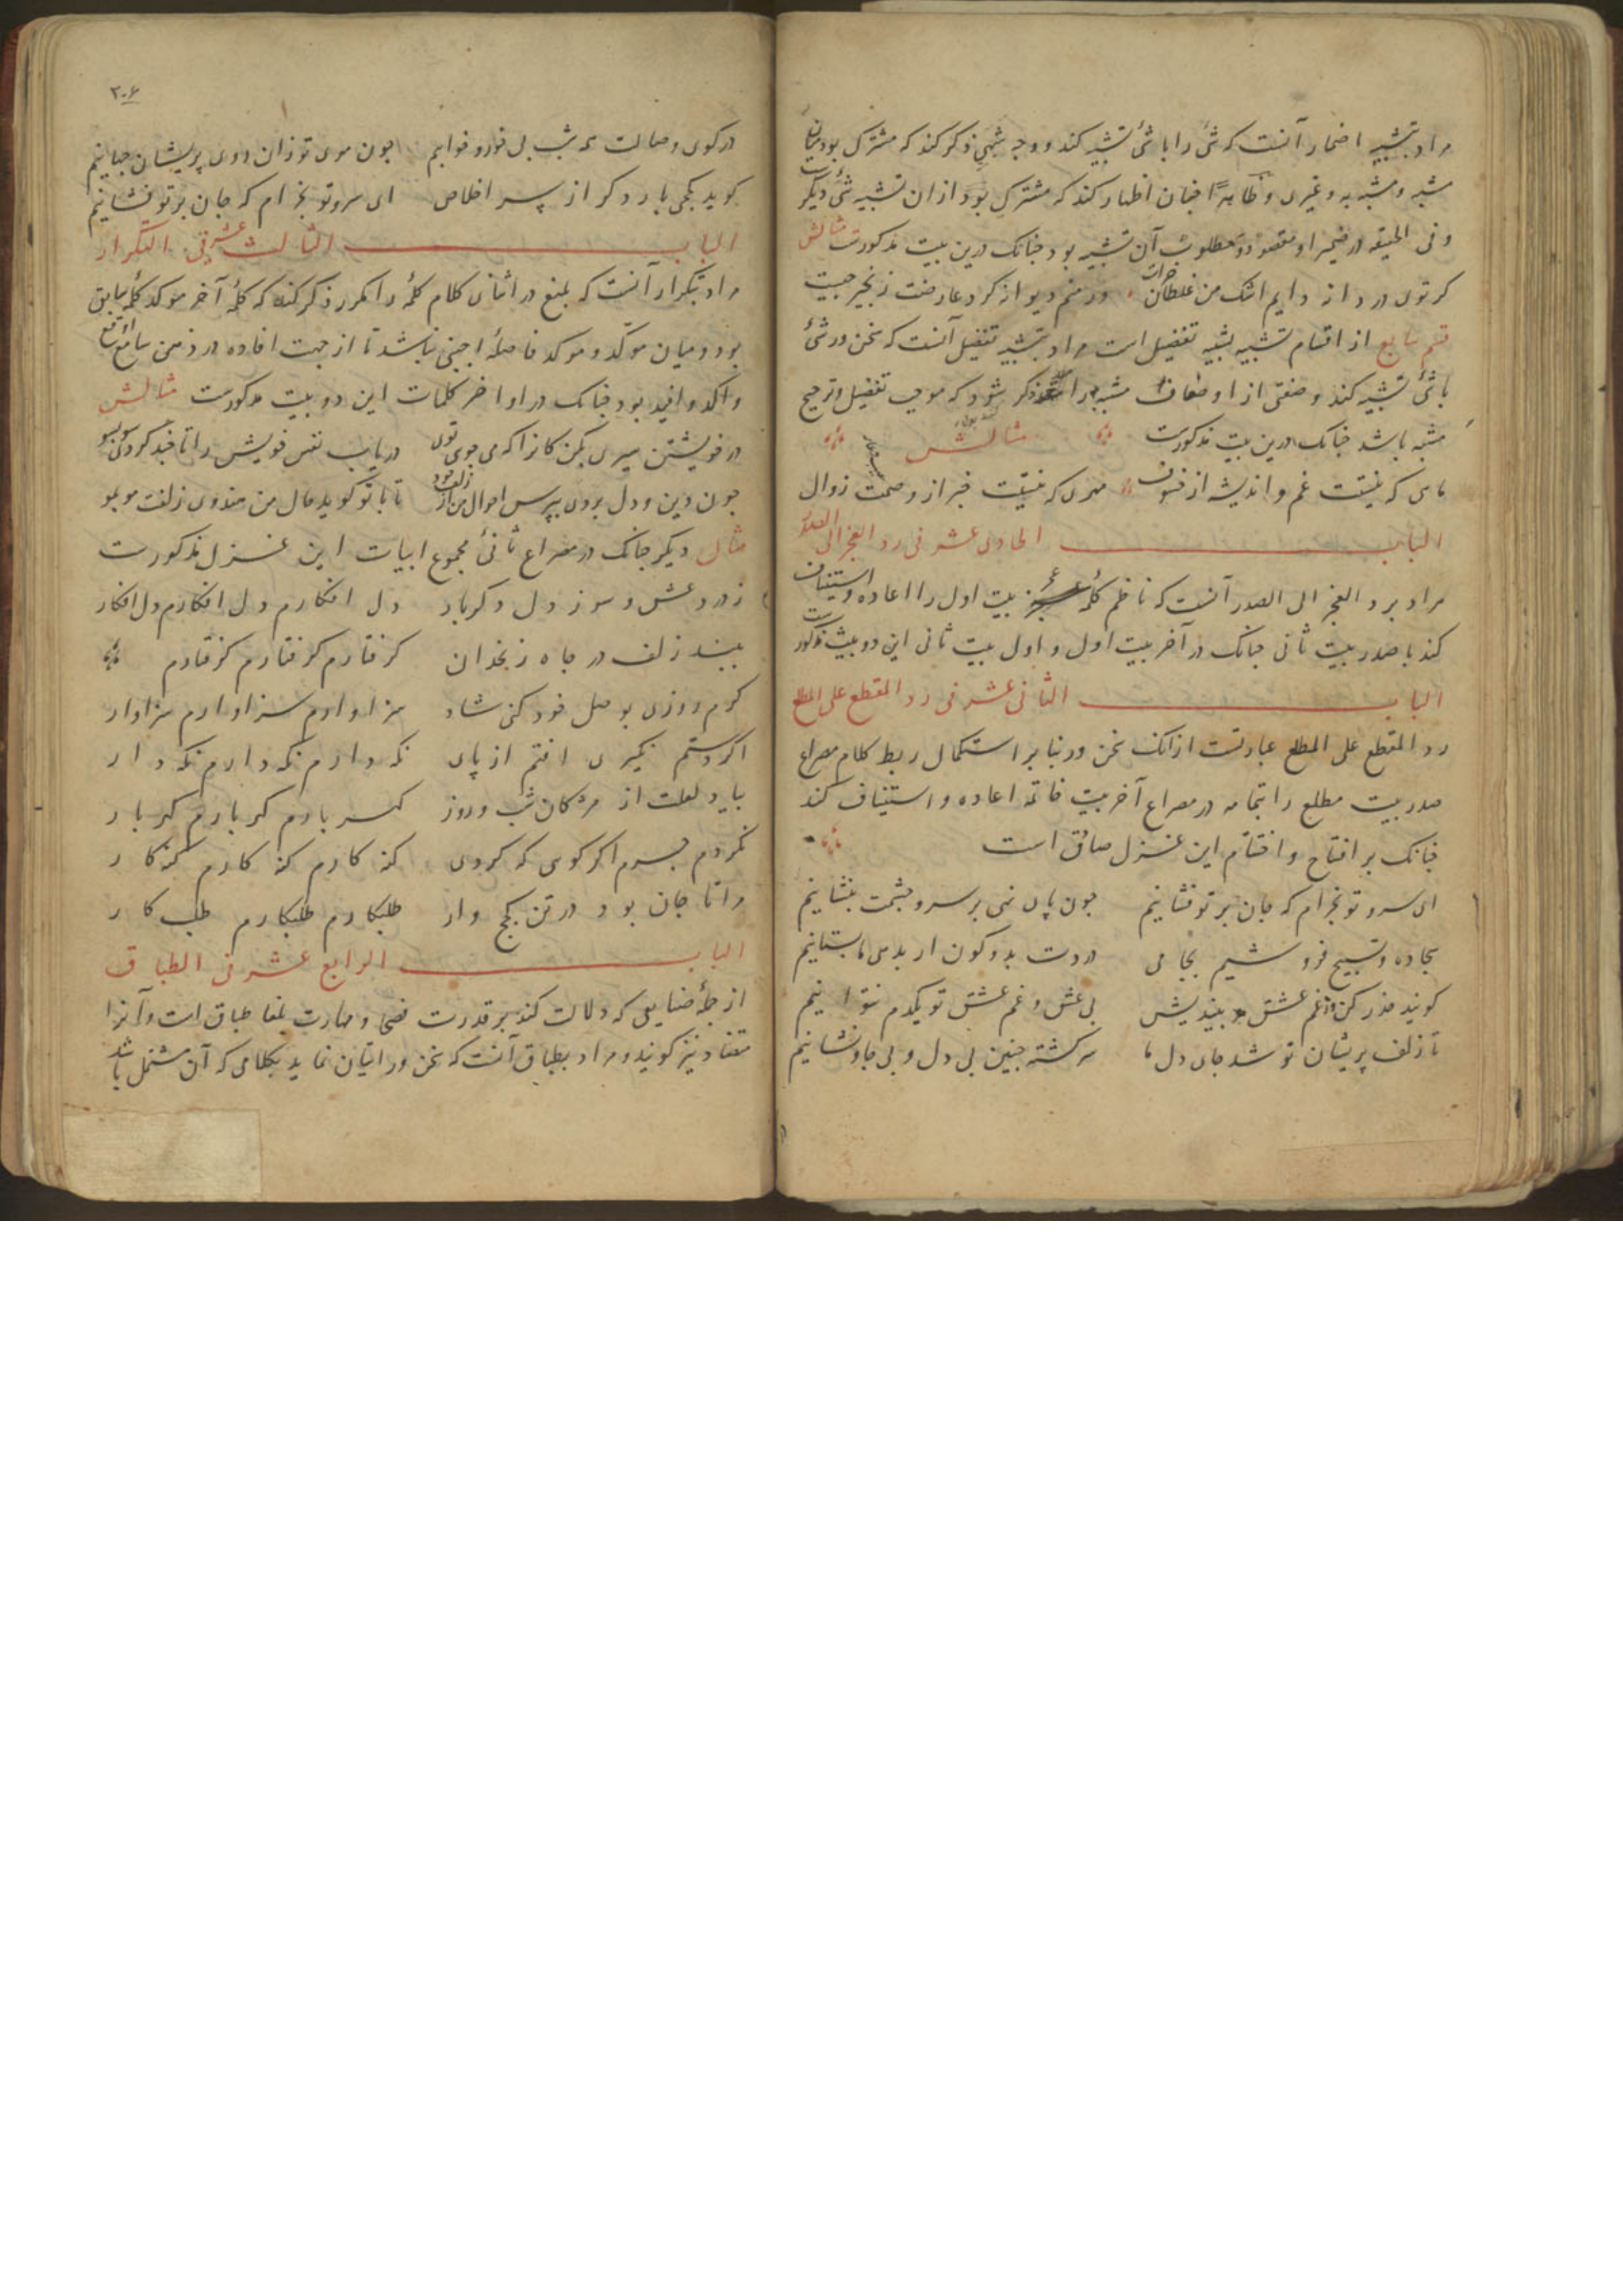 مراد بتشبیه اضمار آنست که شئ را با شئ تشبیه کند و وجه شبهی ذکر کند که مشترک بود میان
مشبه و مشبه به و غیری و ظاهرا چنان اظهار کند که مشترک بود از ان تشبیه شئ دیگرست
و فی الحقیقه در ضمیر او مقصود و مطلوب آن تشبیه بود چنانک درین بیت مذکورست مثالش
کر توی در داز دایم اشک من غلطان چراست ور منم دیوانه کرد عارضت زنجیر چیست
قسم سابع از اقسام تشبیه تشبیه تفضیل است مراد بتشبیه تفضیل آنست که سخن ور شئ
با شئ تشبیه کند و صفتی از اوصاف مشبه را ذکر شود که موجب تفضیل و ترجیح
مشبه باشد چنانک درین بیت مذکورست مثالش
ماهی که نیستت غم و اندیشه از خسوف مهری که نیستت خبر از وصمت زوال
الباب الحادی عشر فی رد العجز الی الصدر
مراد برد العجز الی الصدر آنست که ناظم کلمهٔ عجز بیت اول را اعاده و استیناف
کند با صدر بیت ثانی چنانک در آخر بیت اول و اول بیت ثانی این دو بیت مذکورست
الباب الثانی عشر فی رد المقطع علی المطلع
رد المقطع علی المطلع عبارتست ازانک سخن ور بنا بر استکمال ربط کلام مصراع
صدر بیت مطلع را بتمامه در مصراع آخر بیت خاتمه اعاده و استیناف کند
چنانک بر افتتاح و اختتام این غزل صادق است
ای سرو تو بخرام که جان بر تو فشانیم جون پای نهی بر سر و چشمت بنشانیم
سجاده و تسبیح فروشیم بجامی در دست بدو کون ار بدهی ما بستانیم
کویند حذر کن ز غم عشق و بیندیش بی عشق و غم عشق تو یکدم نتوانیم
تا زلف پریشان تو شد جای دل ما سر کشته جنین بی دل و بی جا و نشانیم
۳۰۶
در کوی وصالت همه شب بی خور و خوابیم جون موی تو زان روی پریشان جهانیم
کوید بکجی بار دکر از سر اخلاص ای سرو تو بخرام که جان بر تو فشانیم
الباب الثالث عشر فی التکرار
مراد بتکرار آنست که بلیغ در اثنای کلام کلمهٔ را مکرر ذکر کند که کلمهٔ آخر موکد کلمهٔ سابق
بود و میان موکد و موکد فاصلهٔ اجنبی نباشد تا از جهت افاده در ذهن سامع اوقع
و اکد و افید بود چنانک در اواخر کلمات این دو بیت مذکورست مثالش
در خویشتن سیری بکن کانرا که می جوی توی دریاب نفس خویش را تا چند کردی سو بسو
جون دین و دل بردی بپرس احوال من از زلف خود تا با تو کوید حال من هندوی زلفت مو بمو
مثال دیکر جنانک در مصراع ثانئ مجموع ابیات این غزل مذکورست
ز درد عشق و سوز دل دکر بار دل افکارم دل افکارم دل افکار
ببند زلف در جاه زنخدان کرفتارم کرفتارم کرفتارم
کرم روزی بوصل خود کنی شاد سزاوارم سزاوارم سزاوار
اکر دستم نکیری افتم از پای نکه دارم نکه دارم نکه دار
بیاد لعلت از مژکان شب و روز کهر بارم کهر بارم کهر بار
نکردم جرم اکر کوی که کردی کنه کارم کنه کارم کنه کار
مرا تا جان بود در تن کجج وار طلبکارم طلبکارم طلب کار
الباب الرابع عشر فی الطباق
از جملهٔ صنایعی که دلالت کند بر قدرت فصحا و مهارت بلغا طباق است و آنرا
متضاد نیز کویند و مراد بطباق آنست که سخن ور اتیان نماید بکلامی که آن مشتمل باشد